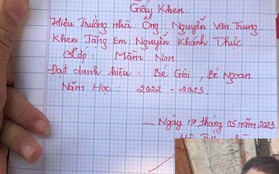 Giấy Khen
Hiệu Trưởng nhà Ông Nguyễn Văn Trung
Khen Tặng Em Nguyễn Khánh Thức
Lớp : Mầm Non
Đạt danh hiệu : Bé Giỏi , Bé Ngoan
Năm Học : 2022 - 2023
Ngày 19 tháng 05 năm 2023